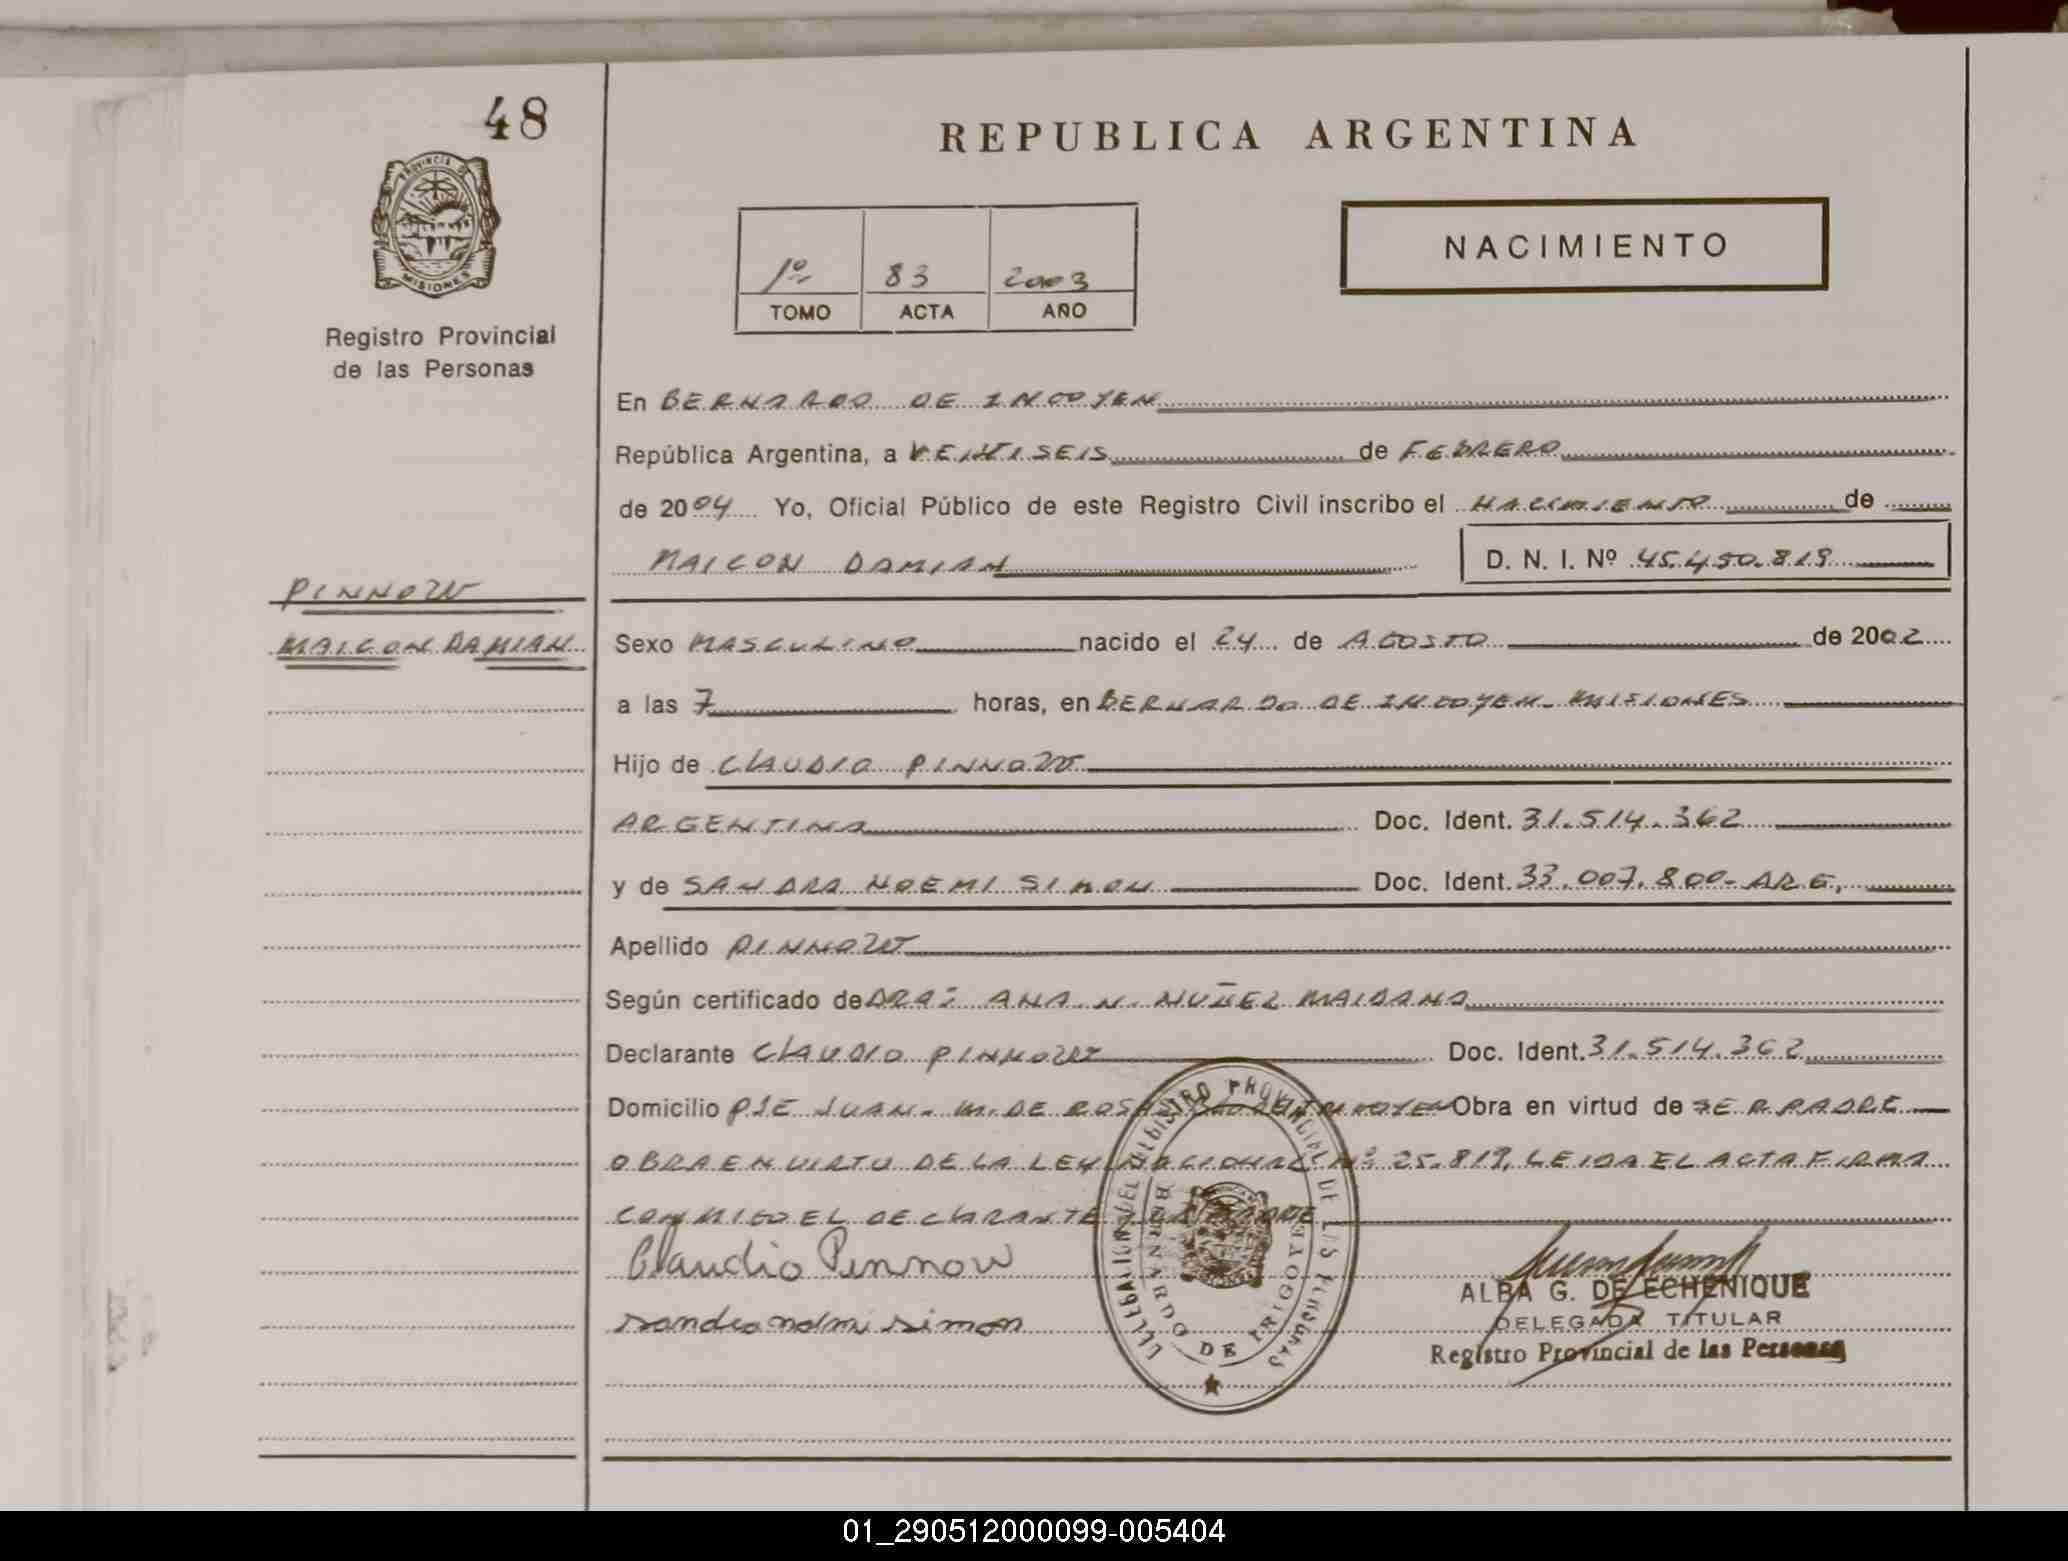 48
PROVINCIA DE
MISIONES
Registro Provincial
de las Personas
PINNOW
MAICON DAMIAN
REPUBLICA ARGENTINA
1º 83 2003
TOMO ACTA AÑO
NACIMIENTO
En BERNARDO DE IRIGOYEN
República Argentina, a VEINTISEIS de FEBRERO
de 2004 Yo, Oficial Público de este Registro Civil inscribo el NACIMIENTO de
MAICON DAMIAN D. N. I. Nº 45.450.819
Sexo MASCULINO nacido el 24 de AGOSTO de 2002
a las 7 horas, en BERNARDO DE IRIGOYEN- MISIONES
Hijo de CLAUDIO PINNOW
ARGENTINA Doc. Ident. 31.514.362
y de SANDRA NOEMI SIMON Doc. Ident. 33.007.800- ARG.
Apellido PINNOW
Según certificado de DRA: ANA N. NUÑEZ MAIDANA
Declarante CLAUDIO PINNOW Doc. Ident. 31.514.362
Domicilio PJE JUAN. M. DE ROSAS Obra en virtud de SER PADRE
OBRA EN VIRTU DE LA LEY NACIONAL Nº 25.819, LEIDA EL ACTA FIRMA
CONMIGO EL DECLARANTE Y
Claudio Pinnow
Sandra noemi simon
DELEGACION DEL REGISTRO PROVINCIAL DE LAS PERSONAS
BERNARDO DE IRIGOYEN
ALBA G. DE ECHENIQUE
DELEGADA TITULAR
Registro Provincial de las Personas
01_290512000099-005404